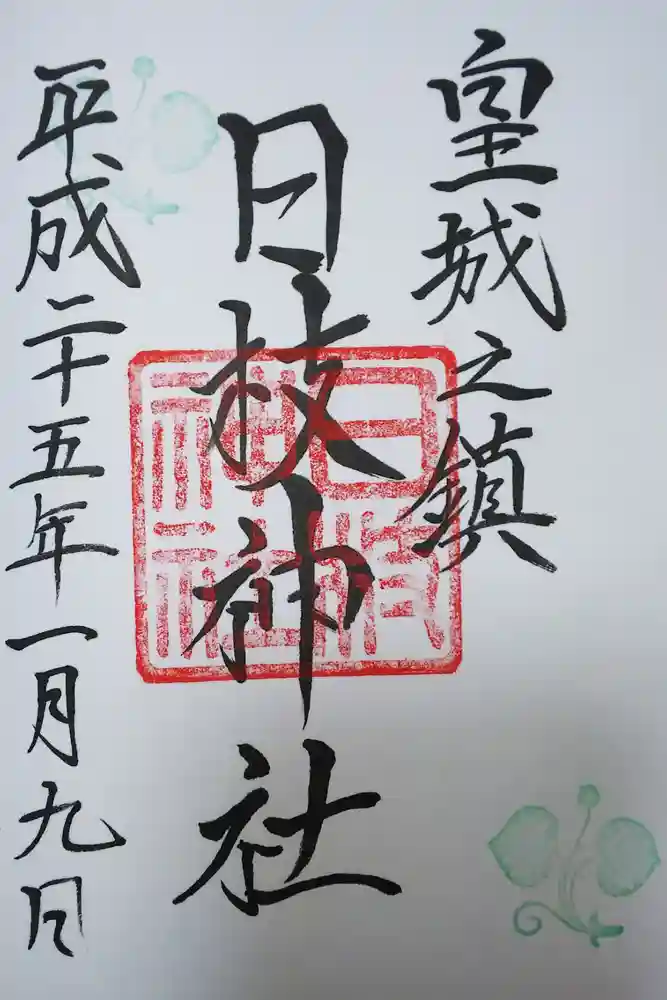 皇城之鎮
日枝神社
日枝神社
平成二十五年一月九日